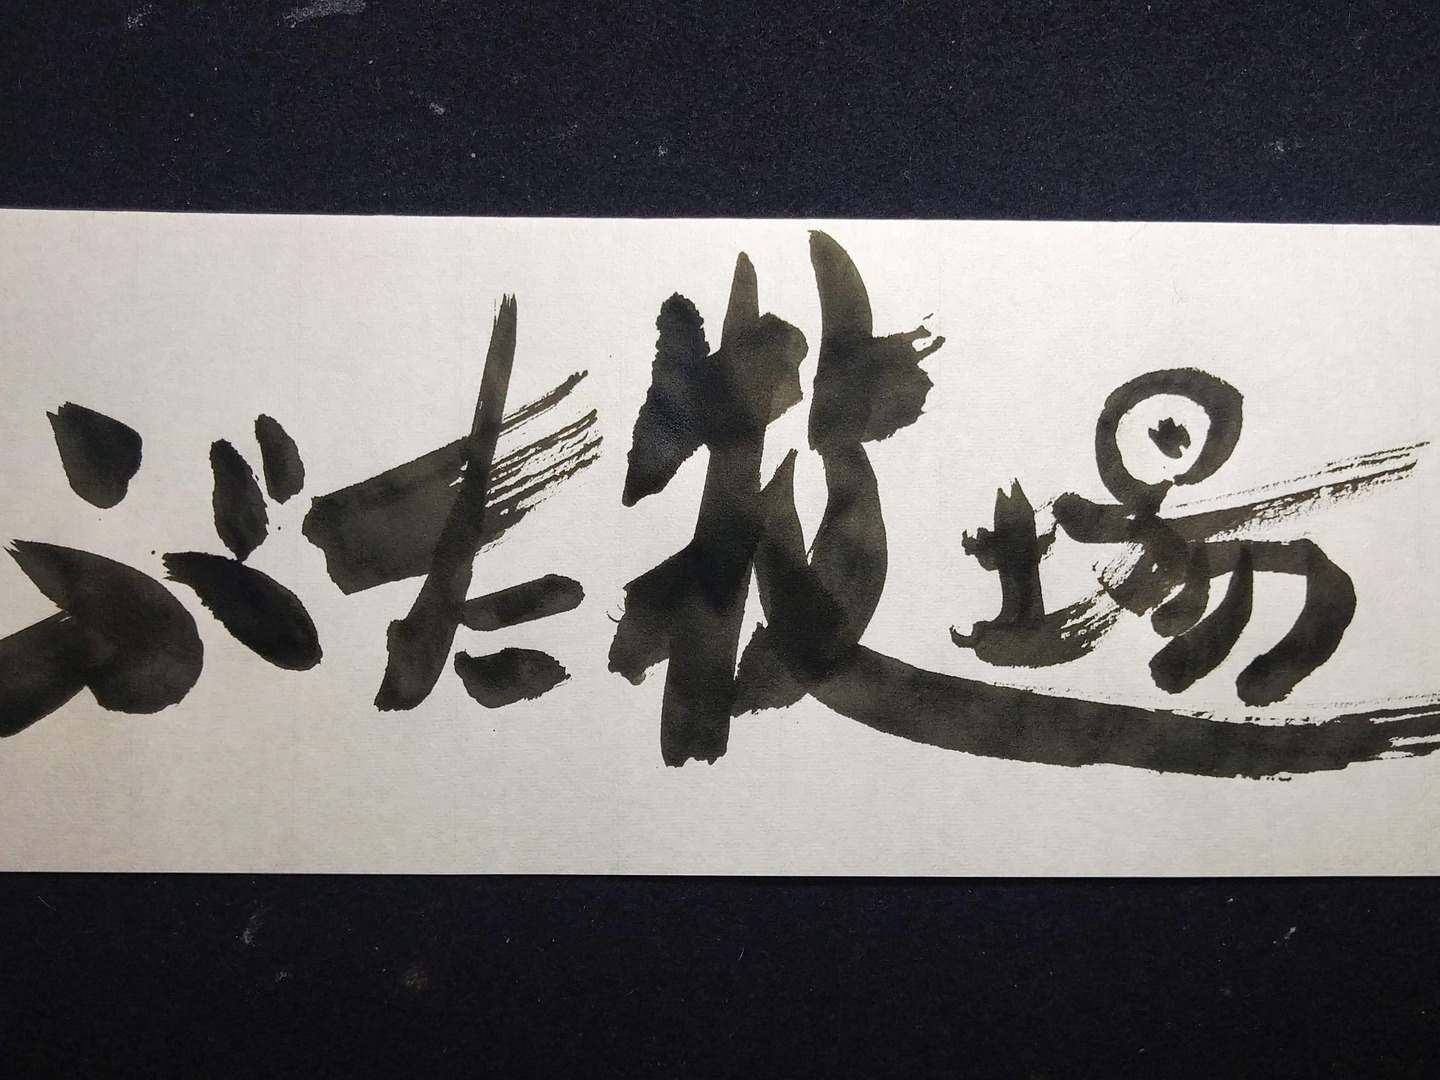 ぶた牧場